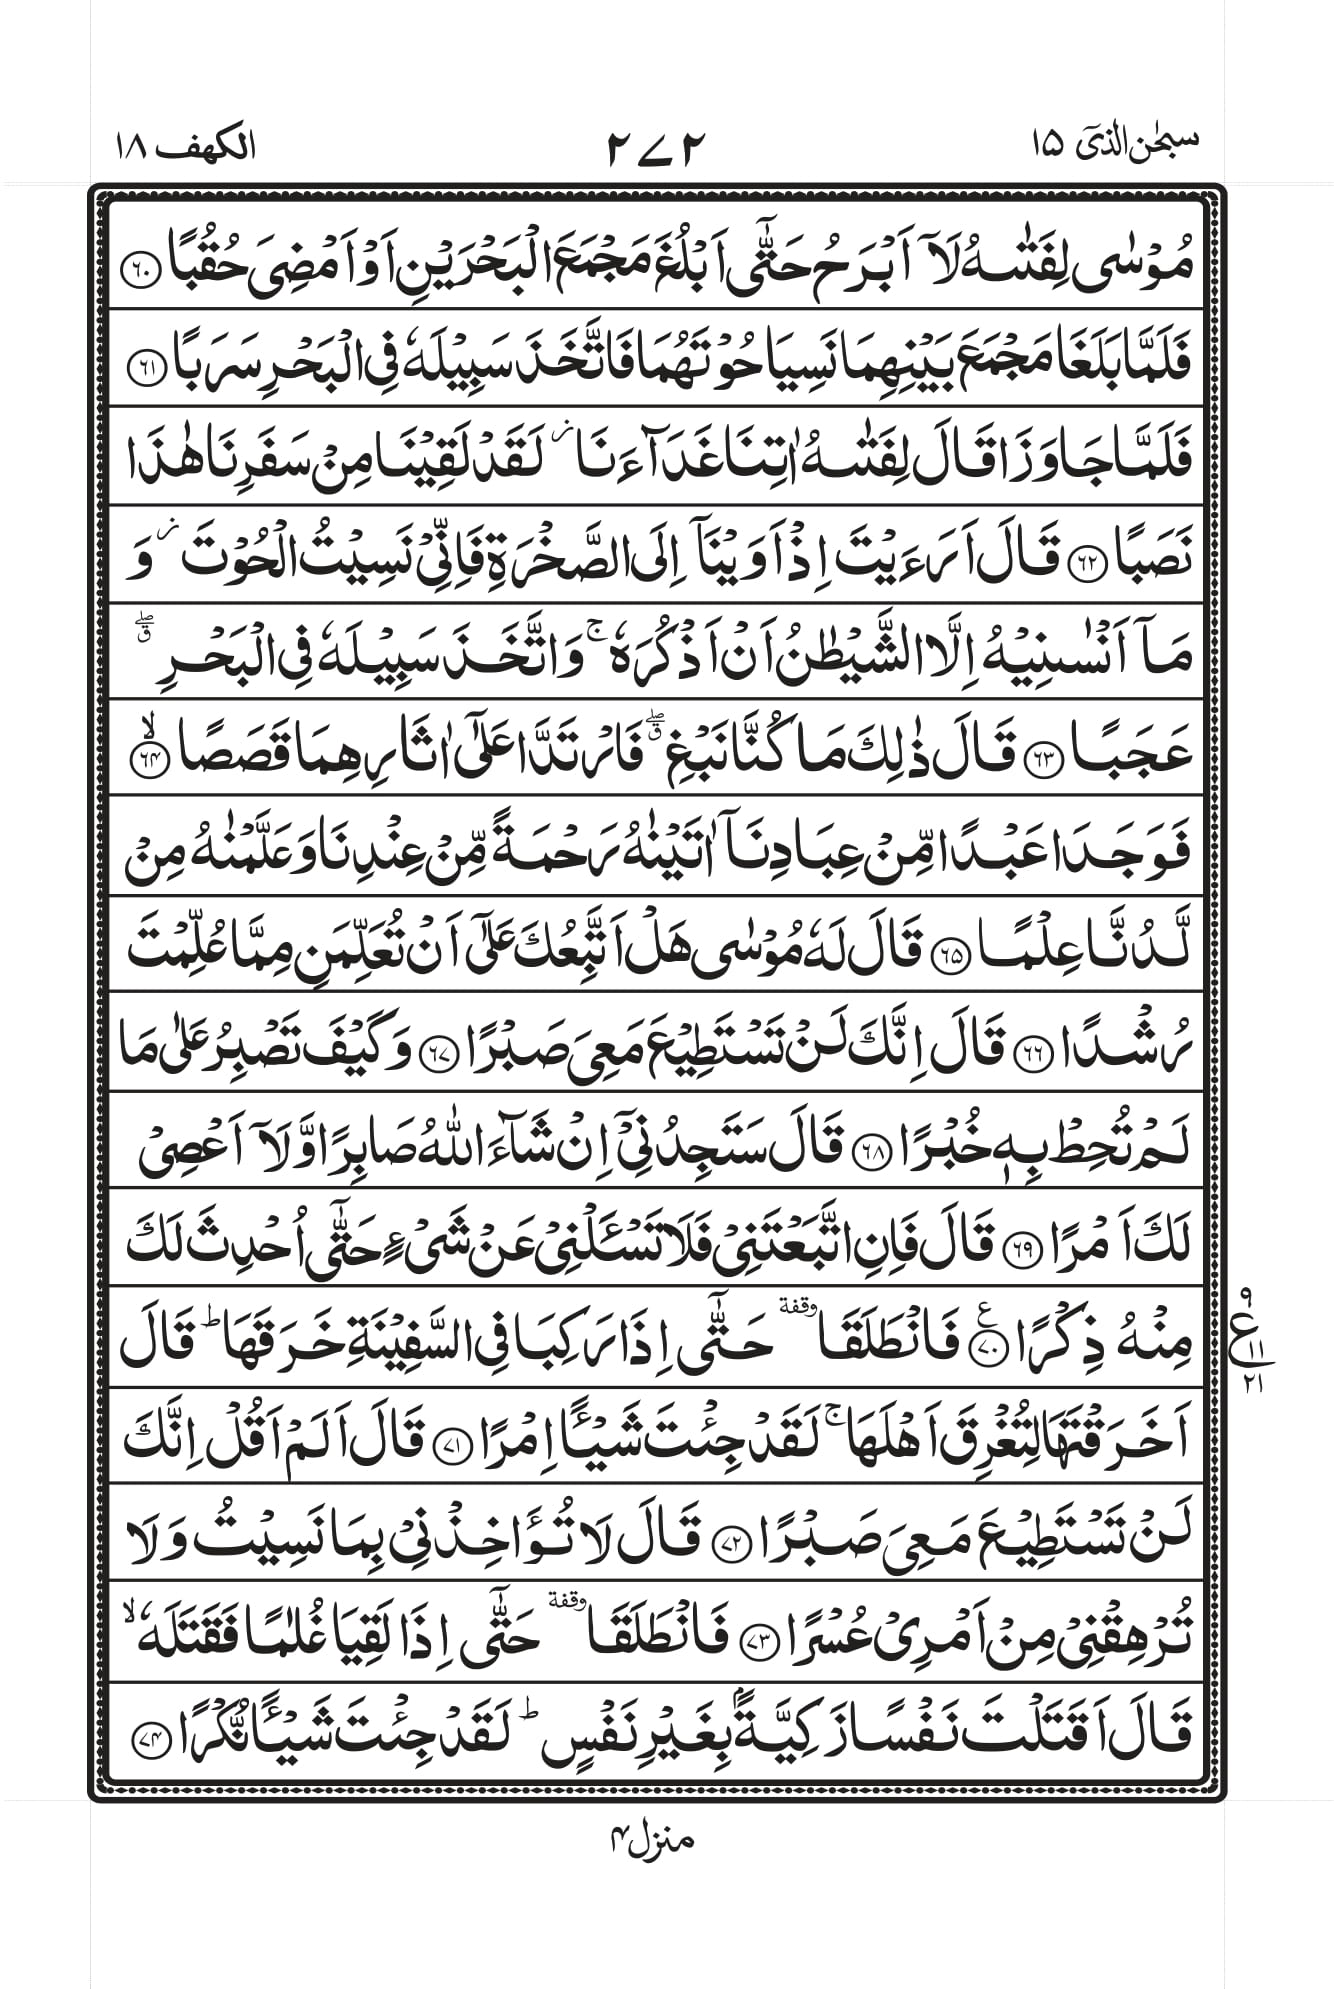 سبحٰن الذی ١٥
٢٧٢
الکهف ١٨
مُوْسٰى لِفَتٰىهُ لَاۤ اَبْرَحُ حَتّٰۤى اَبْلُغَ مَجْمَعَ الْبَحْرَيْنِ اَوْ اَمْضِىَ حُقُبًا ﴿٦٠﴾
فَلَمَّا بَلَغَا مَجْمَعَ بَيْنِهِمَا نَسِيَا حُوْتَهُمَا فَاتَّخَذَ سَبِيْلَهٗ فِى الْبَحْرِ سَرَبًا ﴿٦١﴾
فَلَمَّا جَاوَزَا قَالَ لِفَتٰىهُ اٰتِنَا غَدَآءَنَا ز لَقَدْ لَقِيْنَا مِنْ سَفَرِنَا هٰذَا
نَصَبًا ﴿٦٢﴾ قَالَ اَرَءَيْتَ اِذْ اَوَيْنَاۤ اِلَى الصَّخْرَةِ فَاِنِّىْ نَسِيْتُ الْحُوْتَ ز وَ
مَاۤ اَنْسٰىنِيْهُ اِلَّا الشَّيْطٰنُ اَنْ اَذْكُرَهٗ ۚ وَاتَّخَذَ سَبِيْلَهٗ فِى الْبَحْرِ ۖق
عَجَبًا ﴿٦٣﴾ قَالَ ذٰلِكَ مَا كُنَّا نَبْغِ ۖق فَارْتَدَّا عَلٰٓى اٰثَارِهِمَا قَصَصًا ۙ﴿٦٤﴾
فَوَجَدَا عَبْدًا مِّنْ عِبَادِنَاۤ اٰتَيْنٰهُ رَحْمَةً مِّنْ عِنْدِنَا وَعَلَّمْنٰهُ مِنْ
لَّدُنَّا عِلْمًا ﴿٦٥﴾ قَالَ لَهٗ مُوْسٰى هَلْ اَتَّبِعُكَ عَلٰٓى اَنْ تُعَلِّمَنِ مِمَّا عُلِّمْتَ
رُشْدًا ﴿٦٦﴾ قَالَ اِنَّكَ لَنْ تَسْتَطِيْعَ مَعِىَ صَبْرًا ﴿٦٧﴾ وَكَيْفَ تَصْبِرُ عَلٰى مَا
لَمْ تُحِطْ بِهٖ خُبْرًا ﴿٦٨﴾ قَالَ سَتَجِدُنِىْۤ اِنْ شَآءَ اللّٰهُ صَابِرًا وَّلَاۤ اَعْصِىْ
لَكَ اَمْرًا ﴿٦٩﴾ قَالَ فَاِنِ اتَّبَعْتَنِىْ فَلَا تَسْـَٔلْنِىْ عَنْ شَىْءٍ حَتّٰۤى اُحْدِثَ لَكَ
مِنْهُ ذِكْرًا ﴿٧٠﴾ ع فَانْطَلَقَا وقفة حَتّٰۤى اِذَا رَكِبَا فِى السَّفِيْنَةِ خَرَقَهَا ؕ قَالَ
٩
ع ١١
٢١
اَخَرَقْتَهَا لِتُغْرِقَ اَهْلَهَا ۚ لَقَدْ جِئْتَ شَيْـًٔا اِمْرًا ﴿٧١﴾ قَالَ اَلَمْ اَقُلْ اِنَّكَ
لَنْ تَسْتَطِيْعَ مَعِىَ صَبْرًا ﴿٧٢﴾ قَالَ لَا تُؤَاخِذْنِىْ بِمَا نَسِيْتُ وَلَا
تُرْهِقْنِىْ مِنْ اَمْرِىْ عُسْرًا ﴿٧٣﴾ فَانْطَلَقَا وقفة حَتّٰۤى اِذَا لَقِيَا غُلٰمًا فَقَتَلَهٗ ۙ
قَالَ اَقَتَلْتَ نَفْسًا زَكِيَّةًۢ بِغَيْرِ نَفْسٍ ؕ لَقَدْ جِئْتَ شَيْـًٔا نُّكْرًا ﴿٧٤﴾
منزل ٤